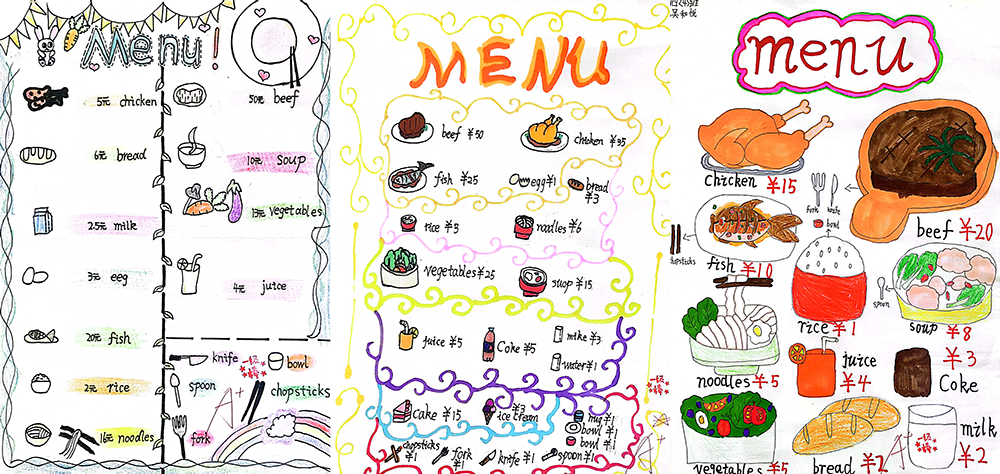 Menu!
5元 chicken
6元 bread
25元 milk
3元 eeg
20元 fish
2元 rice
16元 noodles
50元 beef
10元 soup
13元 vegetables
4元 juice
knife
bowl
spoon
chopsticks
fork
A+
MENU
beef ¥50
chicken ¥35
fish ¥25
egg ¥1
bread ¥3
rice ¥3
noodles ¥6
vegetables ¥25
suop ¥15
juice ¥5
Coke ¥5
mike ¥3
water ¥1
Cake ¥15
ice cream ¥3
mug ¥1
bowl ¥1
bowl ¥1
chopsticks ¥1
fork ¥1
knife ¥1
spoon ¥1
A+
menu
chicken ¥15
fork
knife
bowl
beef ¥20
chopsticks
fish ¥10
rice ¥1
spoon
soup ¥8
noodles ¥5
juice ¥4
¥3
Coke
vegetables ¥5
bread ¥2
milk ¥2